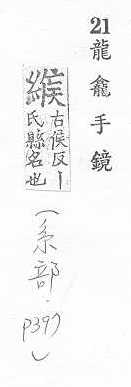 21龍龕手鏡
緱
古侯反丨
氏縣名也
(系部.p397)